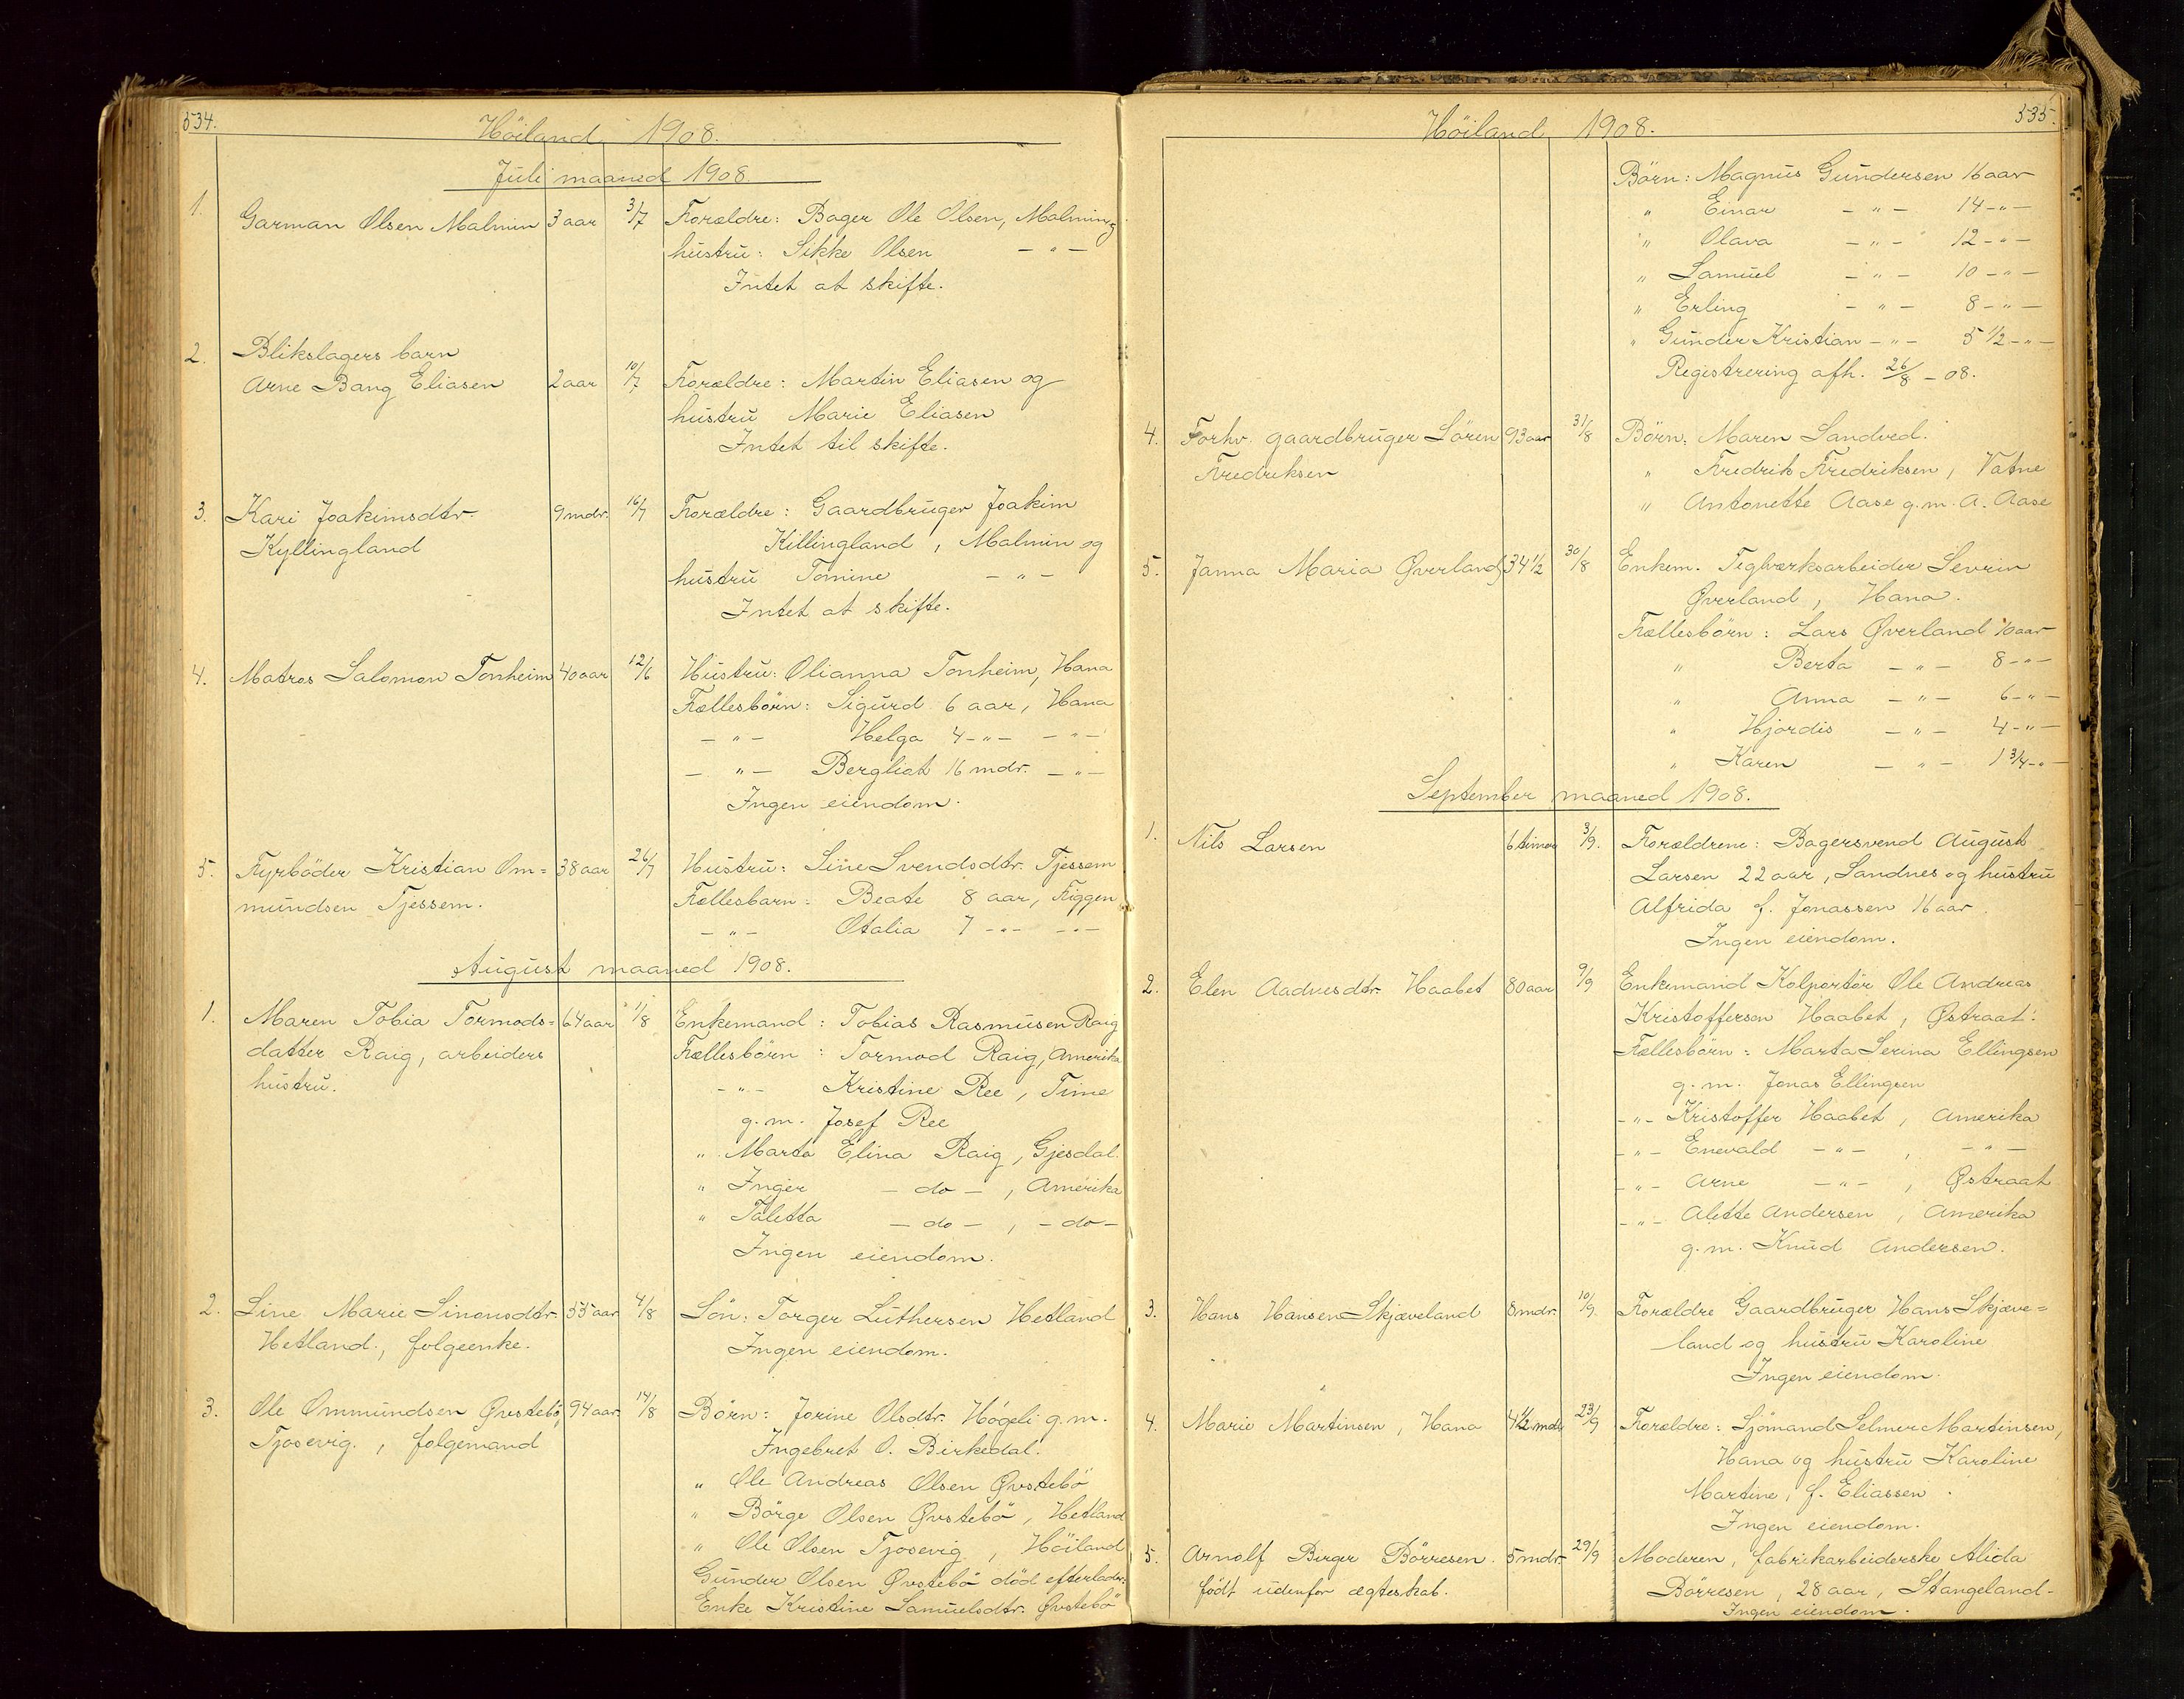 534.
Höiland 1908.
Juli maaned 1908.
1. Garman Olsen Malmin 3 aar 3/7 Forældre: Bager Ole Olsen, Malmin og
hustru: Sikke Olsen - " -
Intet at skifte.
2. Blikslagers barn
Arne Bang Eliasen 2 aar 10/7 Forældre: Martin Eliasen og
hustru Marie Eliasen
Intet til skifte.
3. Kari Joakimsdtr. 9 mdr. 16/7 Forældre: Gaardbruger Joakim
Kyllingland Killingland, Malmin og
hustru Tomine - " -
Intet at skifte.
4. Matros Salomon Tonheim 40 aar 12/6 Hustru: Olianna Tonheim, Hana
Fællesbörn: Sigurd 6 aar, Hana
- " - Helga 4 - " - - " -
- " - Bergliot 16 mdr. - " -
Ingen eiendom.
5. Fyrböder Kristian Om= 38 aar 26/7 Hustru: Sine Svendsdtr. Tjessem
mundsen Tjessem. Fællesbarn: Beate 8 aar, Figgen
- " - Otalia 7 - " - - " -
August maaned 1908.
1. Maren Tobia Tormods= 64 aar 1/8 Enkemand: Tobias Rasmusen Raig
datter Raig, arbeiders Fællesbörn: Tormod Raig, Amerika
hustru. - " - Kristine Ree, Time
g.m. Josef Ree
" Marta Elina Raig, Gjesdal.
" Inger - do -, Amerika
" Taletta - do -, - do -
Ingen eiendom.
2. Line Marie Simonsdtr. 55 aar 4/8 Sön: Torger Luthersen Hetland
Hetland, folgeenke. Ingen eiendom.
3. Ole Ommundsen Øvstebö, 94 aar. 14/8 Börn: Jorine Olsdtr. Högeli g.m.
Tjosevig., folgemand Ingebret O. Birkedal.
" Ole Andreas Olsen Øvstebö
" Börge Olsen Øvstebö, Hetland
" Ole Olsen Tjosevig, Höiland
Gunder Olsen Øvstebö död efterlader:
Enke Kristine Samuelsdtr. Øvstebö
535.
Höiland 1908.
Börn: Magnus Gundersen 16 aar
" Einar - " - 14 - " -
" Olava - " - 12 - " -
" Samuel - " - 10 - " -
" Erling - " - 8 - " -
" Gunder Kristian - " - 5 1/2 - " -
Registrering afh. 26/8 - 08.
4. Forhv. gaardbruger Sören 93 aar 31/8 Börn: Maren Sandved.
Fredriksen " Fredrik Fredriksen, Vatne
" Antonette Aase g.m. A. Aase
5. Janna Maria Øverland 34 1/2 30/8 Enkem. Teglværksarbeider Sevrin
Øverland, Hana.
Fællesbörn: Lars Øverland 10 aar
" Berta - " - 8 - " -
" Anna - " - 6 - " -
" Hjordis - " - 4 - " -
" Karen - " - 1 3/4 - " -
September maaned 1908.
1. Nils Larsen 6 timer 3/9. Forældrene: Bagersvend August
Larsen 22 aar, Sandnes og hustru
Alfrida f. Jonassen 16 aar.
Ingen eiendom.
2. Elen Aadnesdtr. Haabet 80 aar 9/9 Enkemand Kolportör Ole Andreas
Kristoffersen Haabet, Østraat.
Fællesbörn: Marta Serina Ellingsen
g.m. Jonas Ellingsen
- " - Kristoffer Haabet, Amerika
- " - Enevald - " -, - " -
- " - Arne - " -, Østraat
- " - Alette Andersen, Amerika
g.m. Knud Andersen.
3. Hans Hansen Skjæveland 8 mdr. 10/9. Forældre Gaardbruger Hans Skjæve=
land og hustru Karoline
Ingen eiendom.
4. Marie Martinsen, Hana 4 1/2 mdr. 23/9 Forældre: Sjömand Selmer Martinsen,
Hana og hustru Karoline
Martine, f. Eliassen.
Ingen eiendom.
5. Arnolf Birger Börresen. 5 mdr. 29/9 Moderen, fabrikarbeiderske Alida
födt udenfor ægteskab. Börresen, 28 aar, Stangeland-
Ingen eiendom.